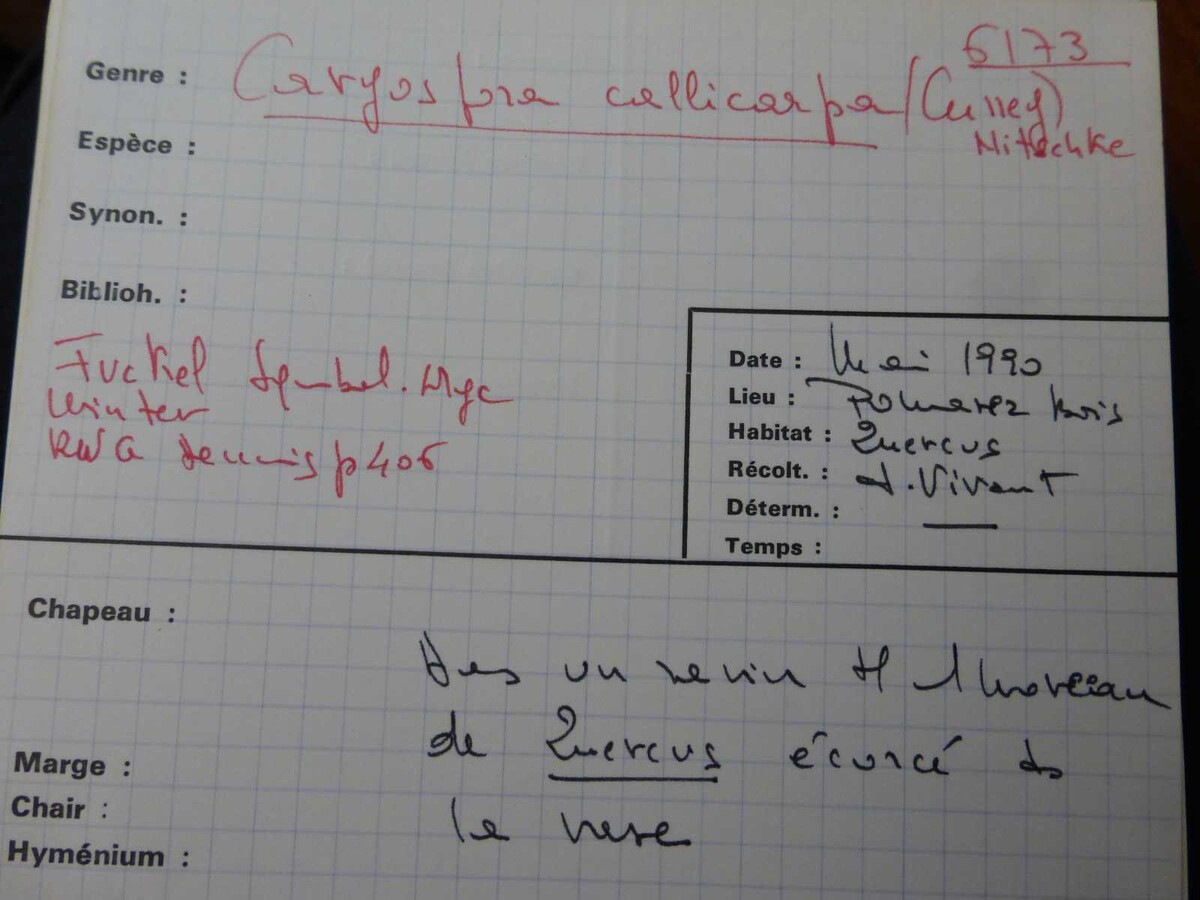 6173
Genre : Caryospora callicarpa (Currey)
Nitschke
Espèce :
Synon. :
Biblioh. :
Fuckel Symbol. Myc
Winter
RWG Dennis p406
Date : Mai 1990
Lieu : Pomarez bois
Habitat : Quercus
Récolt. : J. Vivant
Déterm. : —
Temps :
Chapeau :
un ravin 1 morceau
de Quercus écorcé ds
la vase
Marge :
Chair :
Hyménium :